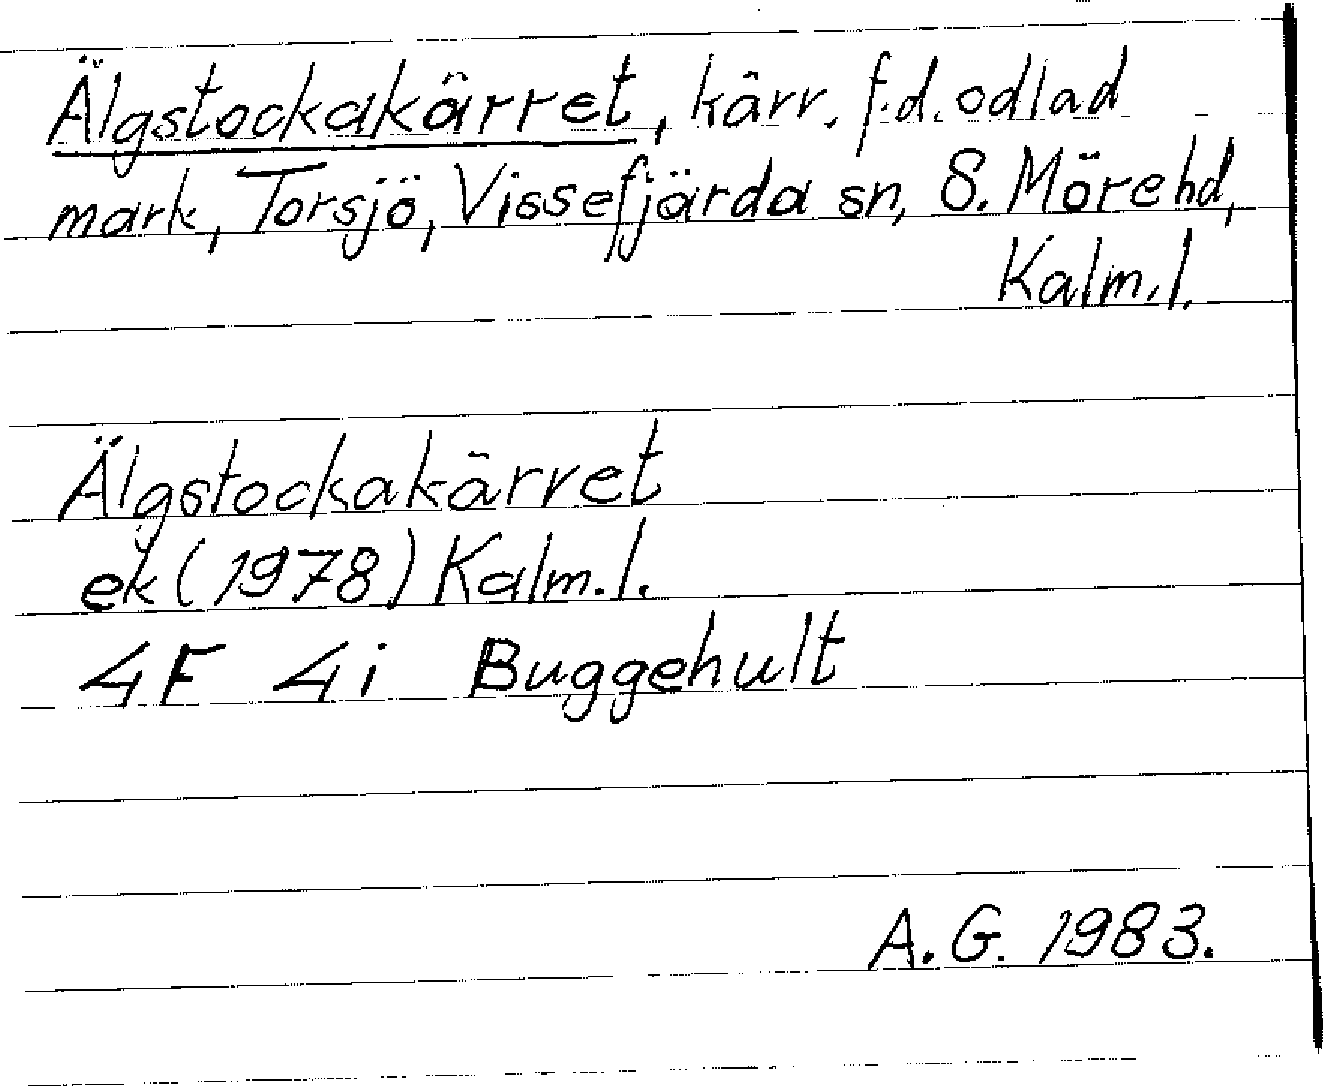 Älgstockakärret, kärr. f.d. odlad
mark, Torsjö, Vissefjärda sn, S. Möre hd,
Kalm.l.
Älgstockakärret
ek (1978) Kalm.l.
4F 4i Buggehult
A.G. 1983.